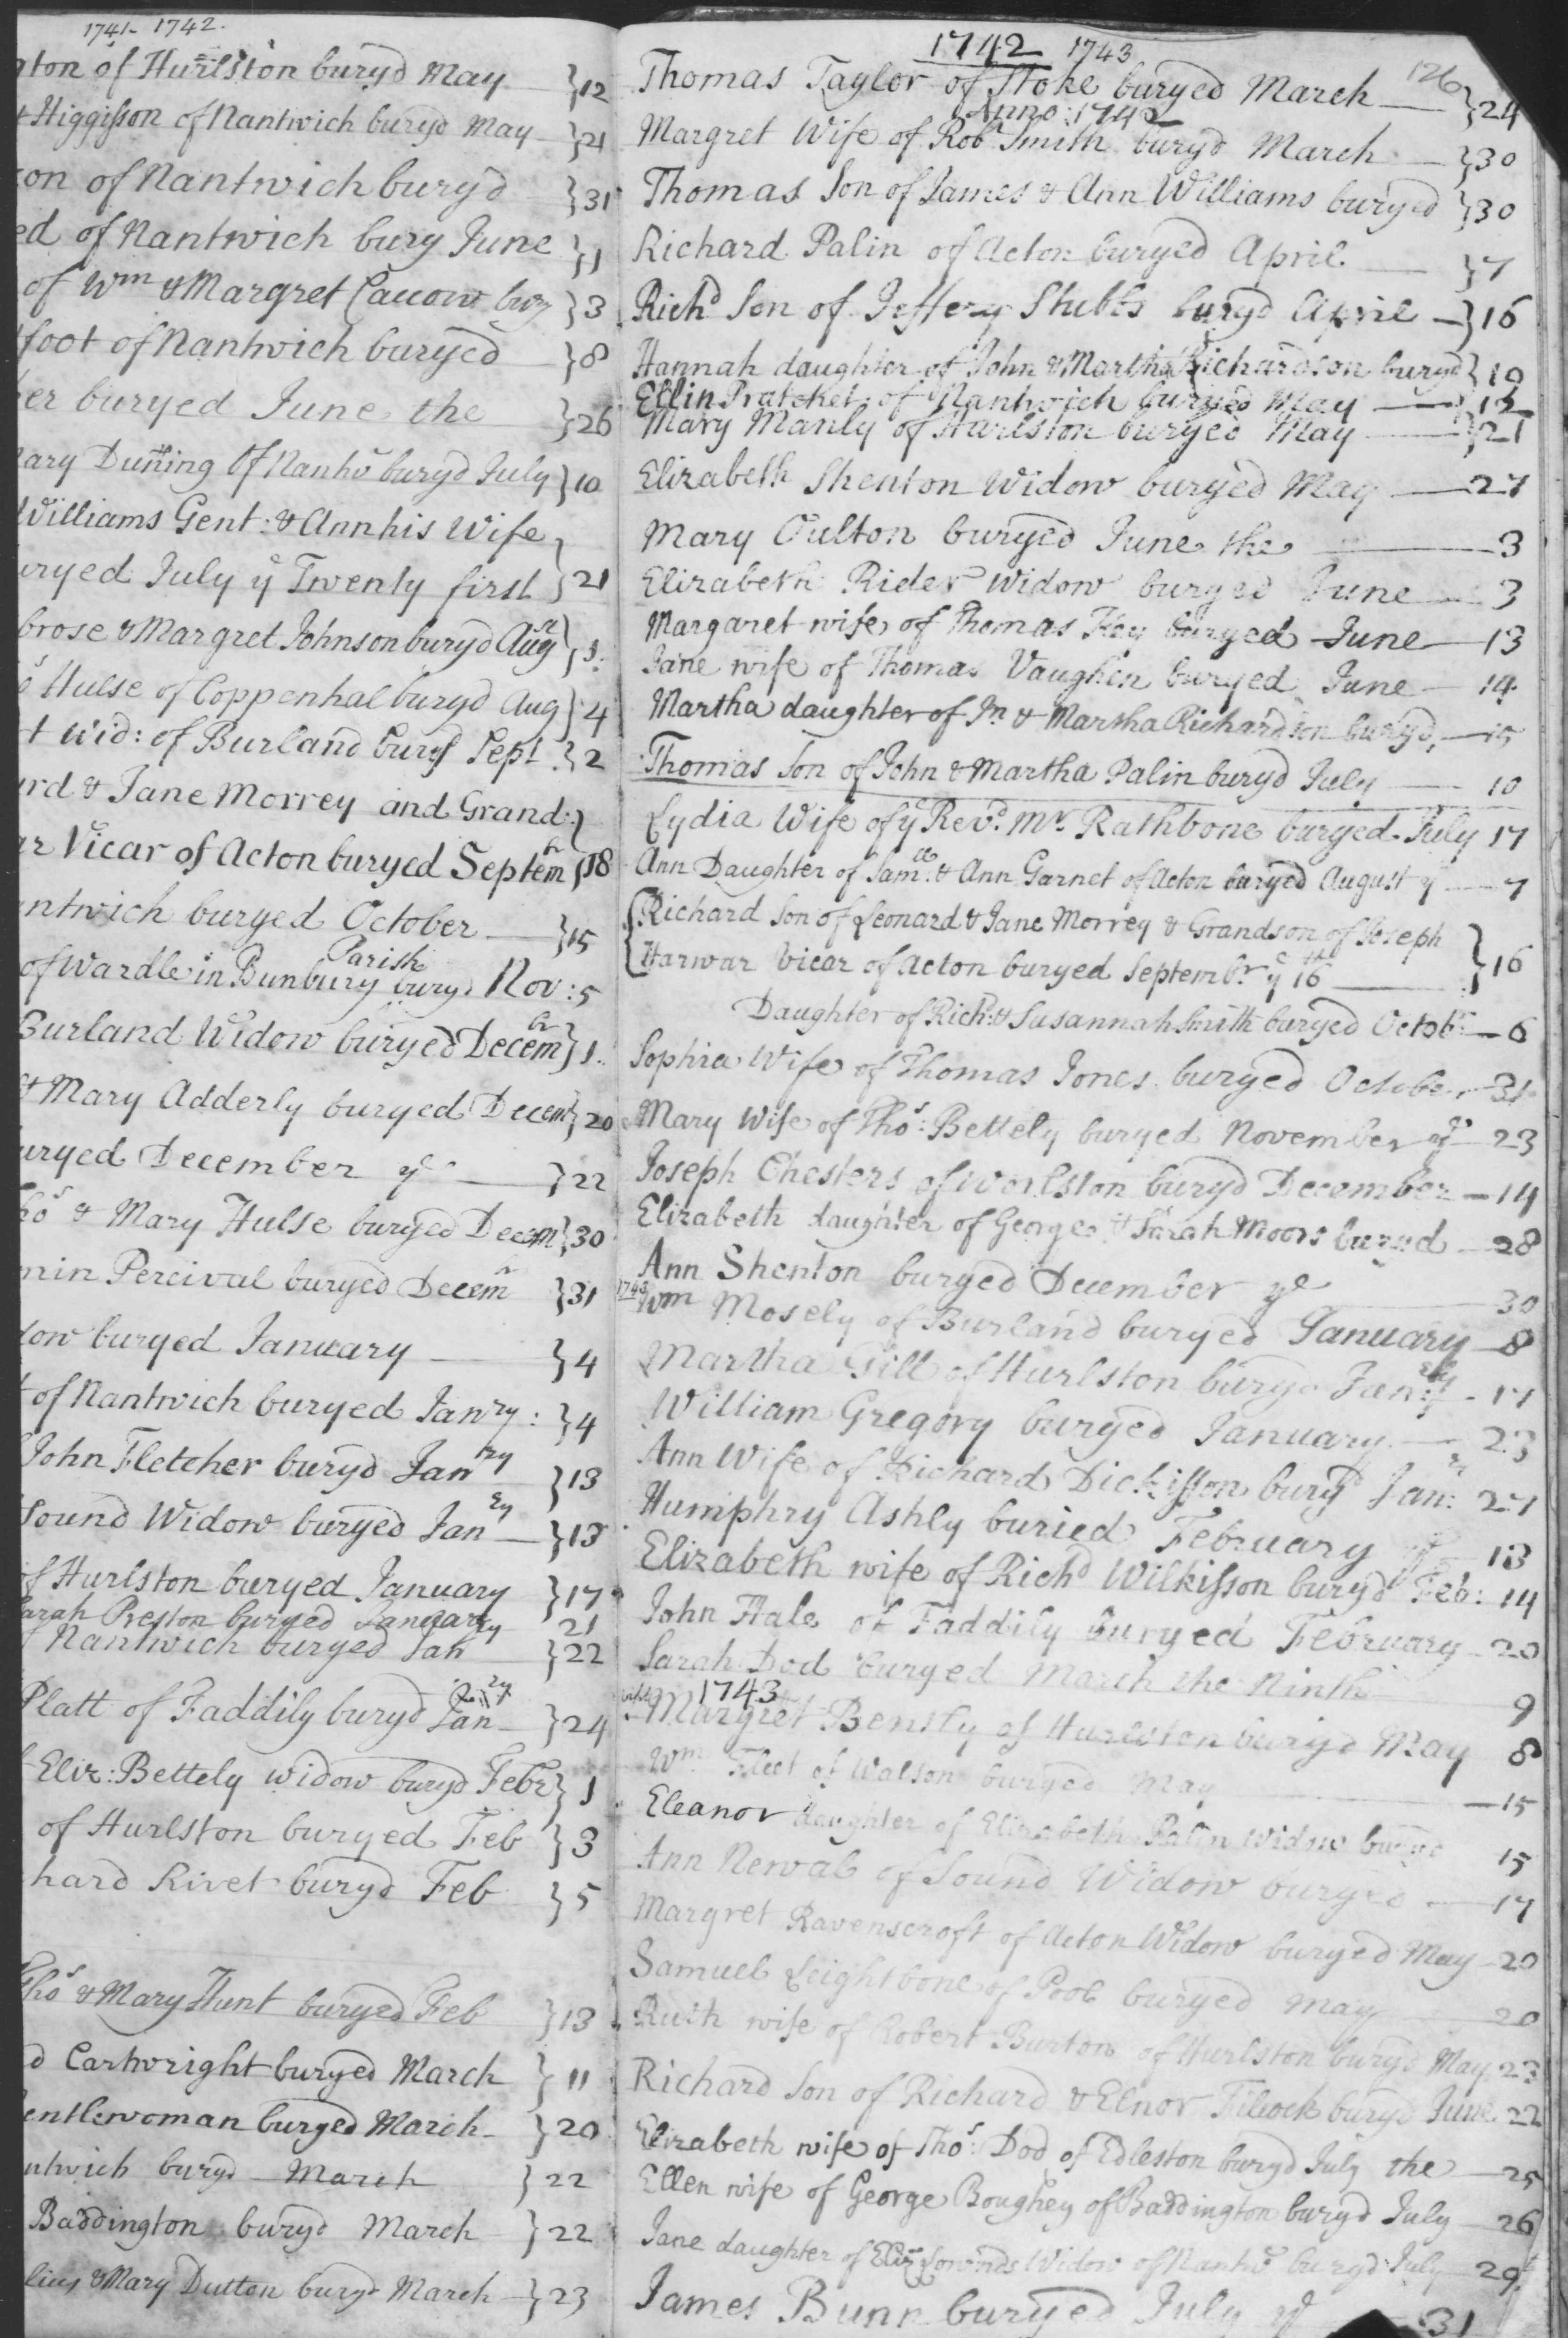 1741- 1742.
gton of Hurlston buryd May } 12
& Higgisson of Nantwich buryd May } 21
on of Nantwich buryd } 31
ed of Nantwich bury June } 1
of Wm & Margret Cauow bury } 3
foot of Nantwich buryed } 8
er buryed June the } 26
ary Duning of Nantwch buryd July } 10
Williams Gent: & Ann his Wife
uryed July ye Twenty first } 21
brose & Margret Johnson buryd Augst } 3:
Hulse of Coppenhal buryd Aug } 4
t Wid: of Burland buryd Sept } 2
ard & Jane Morrey and Grand: }
ar Vicar of Acton buryed Septembr } 18
ntwich buryed October } 15
of Wardle in Bunbury Parish buryd Nov: 5
Burland Widow buryed Decembr } 1
& Mary Adderly buryed Decem } 20
uryed December ye } 22
hos & Mary Hulse buryed Decem } 30
min Percival buryed Decem } 31
dow buryed January } 4
t of Nantwich buryed Janry: } 4
John Fletcher buryd Janry } 13
Sound Widow buryed Janry } 13
of Hurlston buryed January } 17
arah Preston buryed January 21
f Nantwich buryed Jan } 22
Platt of Faddily buryd Janry } 24
Eliz: Bettely Widow buryd Febr } 1
of Hurlston buryed Feb } 3
hard Rivet buryd Feb } 5
Thos & Mary Hunt buryed Feb } 13
d Cartwright buryed March } 11
entlewoman buryed March } 20
ntwich buryd March } 22
Baddington buryd March } 22
lius & Mary Dutton buryd March } 23
1742 1743
126
Thomas Taylor of Stoke buryed March } 24
Anno: 1742
Margret Wife of Robt Smith buryd March } 30
Thomas Son of James & Ann Williams buryed } 30
Richard Palin of Acton buryed April } 7
Richd Son of Jeffery Stubbs buryd April } 16
Hannah daughter of John & Martha Richardson buryd } 19
Ellin Pratchet of Nantwich buryed May 12
Mary Manly of Hurlston buryed May } 21
Elizabeth Shenton Widow buryed May 27
Mary Oulton buryed June the 3
Elizabeth Rider Widow buryed June 3
Margaret wife of Thomas Key buryed June 13
Jane wife of Thomas Vaughen buryed June 14
Martha daughter of Jn & Martha Richardson buryd 15
Thomas Son of John & Martha Palin buryd July 10
Lydia Wife of ye Revd. Mr. Rathbone buryed July 17
Ann Daughter of Samll & Ann Garnet of Acton buryed August ye 7
{ Richard Son of Leonard & Jane Morrey & Grandson of Joseph
Harwar Vicar of Acton buryed Septembr. ye 16th } 16
Daughter of Rich: & Susannah Smith buryed Octobr 6
Sophia Wife of Thomas Jones buryed October 31
Mary Wife of Thos: Bettely buryed November ye 23
Joseph Chesters of Worlston buryd December 14
Elizabeth daughter of George & Sarah Moors buryed 28
Ann Shenton buryed December ye 30
1743
Wm Mosely of Burland buryed January 8
Martha Gill of Hurlston buryd Janry 17
William Gregory buryed January 23
Ann Wife of Richard Dickisson buryd Janry: 27
Humphry Ashly buried February ye 13
Elizabeth wife of Richd Wilkisson buryd Feb: 14
John Hale of Faddily buryed February 20
Sarah Dod buryed March the Ninth 9
1743
Margret Bensly of Hurlston buryd May 8
Wm Fleet of Walson buryed May 15
Eleanor daughter of Elizabeth Palin Widow buryd 15
Ann Nerval of Sound Widow buryed 17
Margret Ravenscroft of Acton Widow buryed May 20
Samuel Leightbone of Pool buryed May 20
Ruth wife of Robert Burton of Hurlston buryd May 23
Richard Son of Richard & Elnor Filcock buryd June 22
Elizabeth wife of Thos: Dod of Edleston buryd July the 25
Ellen wife of George Boughey of Baddington buryd July 26
Jane daughter of Eliz Widow of Nantwch buryd July 29
James Bunn buryed July ye 31